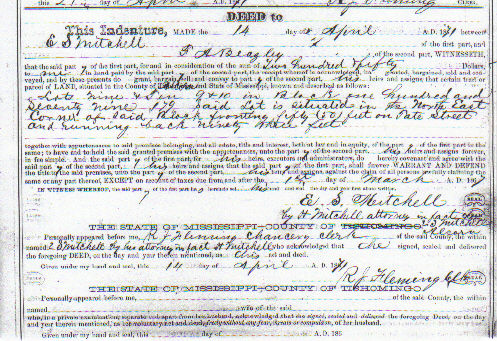 DEED to
This Indenture, MADE the 14 day of April A. D. 1871 between
E S Mitchell of the first part, and
F A Beagley of the second part, WITNESSETH,
that the said party of the first part, for and in consideration of the sum of Two Hundred fifty Dollars,
to me in hand paid by the said party of the second part, the receipt whereof is acknowledged, granted, bargained, sold and con-
veyed, and by these presents do grant, bargain, sell and convey to said party of the second part, his heirs and assigns that certain tract or
parcel of LAND, situated in the County of State of Mississippi, known and described as follows:
Lot nine & Ten 9 & 10 in Block one Hundred and
Seventy nine 179 Said Lot is situated in the North East
Corner of Said Block fronting fifty (50) feet on Tate Street
and running back ninety feet
together with appurtenances to said premises belonging, and all estate, title and interest, both at law and in equity, of the part of the first part in the
same; to have and to hold the said granted premises with the appurtenances, unto the party of the second part, his heirs and assigns forever,
in fee simple. And the said party of the first part, for his heirs, executors and administrators, do hereby covenant and agree with the
said party of the second part, heirs and assigns that the said party of the first part, shall forever WARRANT AND DEFEND
the title to the said premises, unto the party of the second part, his heirs and assigns, against the claim of all persons lawfully claiming the
same or any part thereof, EXCEPT on account of taxes due from, and after the day of March A. D. 187
IN WITNESS WHEREOF, the said party of the first part has hereunto set his hand and seal the day and year first above written.
E. S. Mitchell
by H Mitchell attorney in fact
THE STATE OF MISSISSIPPI-COUNTY OF TISHOMINGO
Personally appeared before me, R J Fleming Chancery Clerk of the said County, the within
named E S Mitchell by his attorney in fact H Mitchell who acknowledged that he signed, sealed and delivered
the foregoing DEED, on the day and year therein mentioned, as his act and deed.
Given under my hand and seal, this 14 day of April A. D. 1871
R J Fleming Clk
THE STATE OF MISSISSIPPI-COUNTY OF TISHOMINGO
Personally appeared before me, of the said County, the within
named wife of the said
who, in a private examination, separate and apart from her husband, acknowledged that she signed, sealed and delivered the foregoing DEED, on the day
and year therein mentioned, as her voluntary act and deed, freely without any fear, threats or compulsion, of her husband.
Given under my hand and seal, this day of A. D. 186